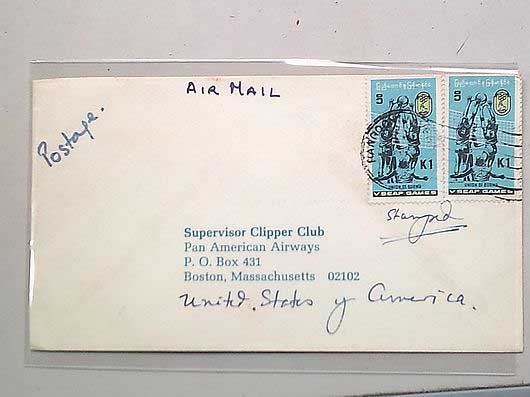 AIR MAIL
Postage.
5 5
K1 K1
UNION OF BURMA UNION OF BURMA
V SEAP GAMES V SEAP GAMES
Stamped
Supervisor Clipper Club
Pan American Airways
P. O. Box 431
Boston, Massachusetts 02102
United States of America.